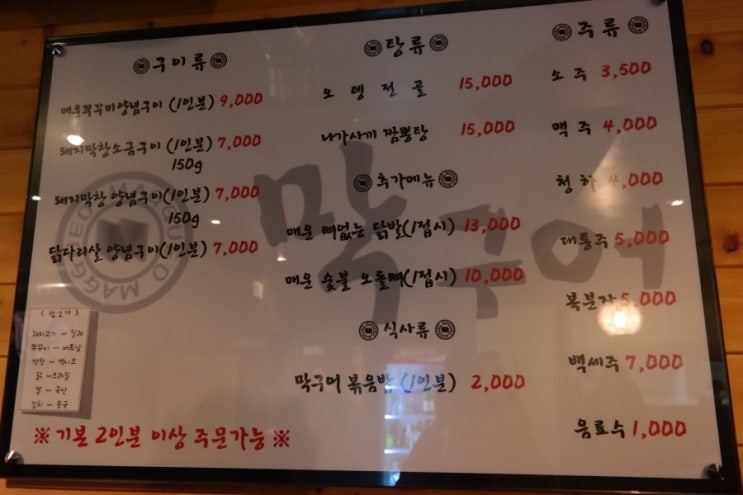 구이류
매운쭈꾸미양념구이 (1인분) 9,000
돼지막창소금구이 (1인분) 7,000
150g
돼지막창 양념구이(1인분) 7,000
150g
닭다리살 양념구이(1인분) 7,000
탕류
오뎅전골 15,000
나가사끼 짬뽕탕 15,000
추가메뉴
매운 뼈없는 닭발(1접시) 13,000
매운 숯불 오돌뼈(1접시) 10,000
식사류
막구어 볶음밥 (1인분) 2,000
주류
소주 3,500
맥주 4,000
청하 4,000
대통주 5,000
복분자 5,000
백세주 7,000
음료수 1,000
막구어
< 원산지 >
돼지고기 - 칠레
쭈꾸미 - 베트남
닭 - 브라질
쌀 - 국산
김치 - 중국
※ 기본 2인분 이상 주문가능 ※